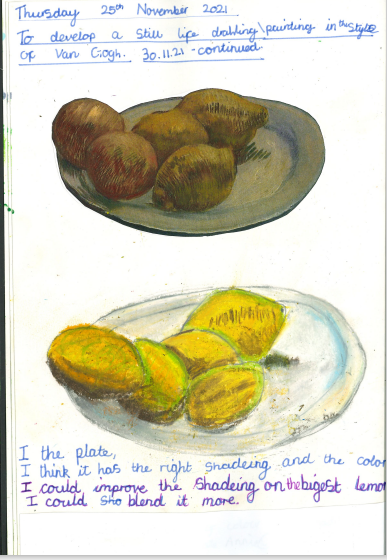 Thursday 25th November 2021
To develop a Still life drawing\painting in the style
of Van Gogh. 30.11.21 - continued.
I the plate,
I think it has the right shadeing and the color
I could improve the shadeing on the bigest lemo
I could sho blend it more.